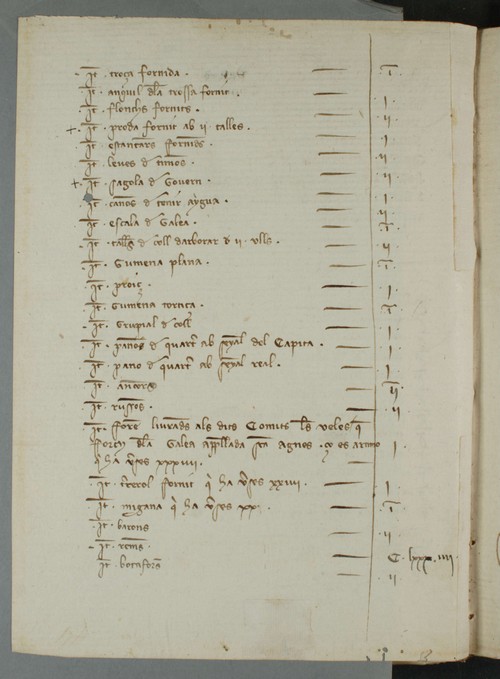 It · troça fornida · I ·
It · anguil dla trossa fornit · I
It · flonchs fornits · II
+ It · proda fornit ab II talles · I
It · estantars fornids · II
It · leves d timos · II
+ It · sagola d Govern · I
It · canos d tenir aygua · II
It · escala d Galea · I
It · talls d coll darborar d II ulls · II
It · Gumena plana · I
It · proiç · I
It · Gumena tortiça · I
It · Grupial d coll · I
It · panos d quart ab senyal del Capita · I
It · pano d quart ab senyal real · I
It · ancores II
It · russos · II
It · Foren liurades als dits Comits les veles q
foren dla Galea apellada sta Agnes · ço es artimo I
q ha gses XXXVIII ·
It · terçerol fornit q ha gses XXVIII · I
It · migana q ha gses XX · I
It · barons II
It · rems · C LXXX IIII
It · botafors II